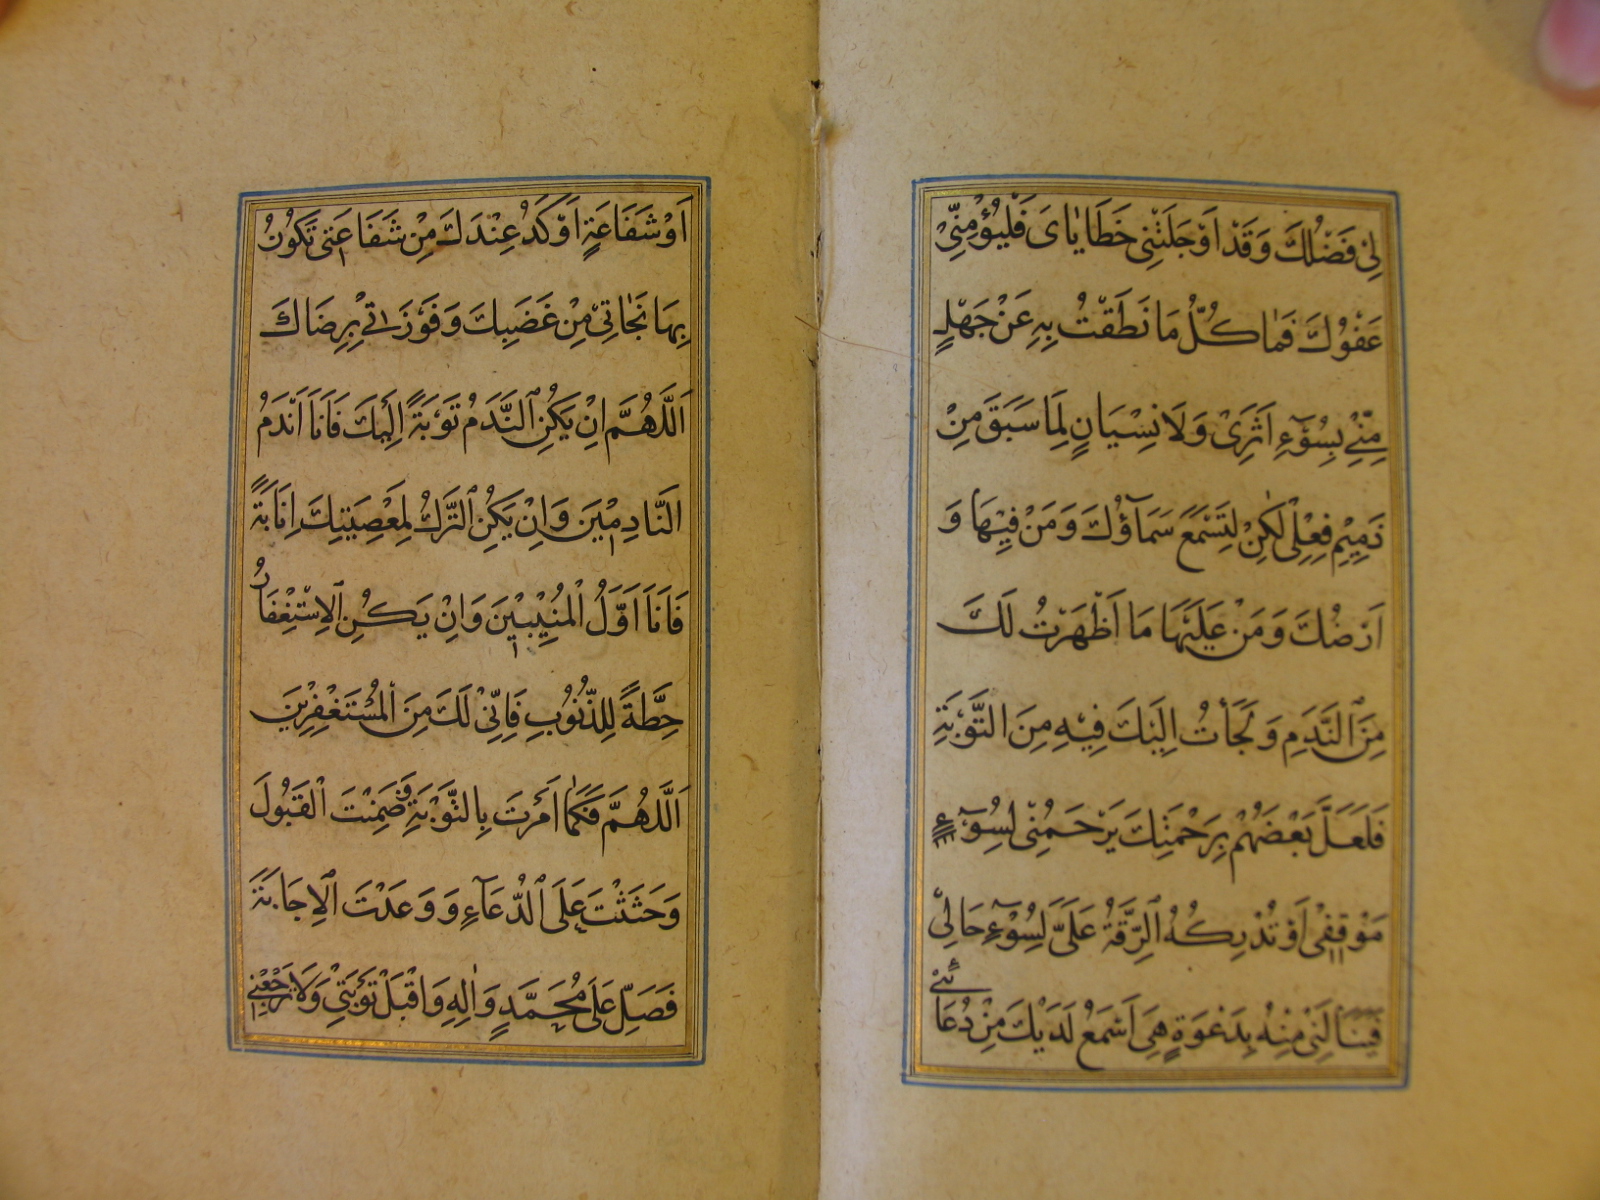 لِیْ فَضْلُكَ وَقَدْ اَوْجَلَتْنِی خَطَایَایَ فَلْیُؤْمِنِّیْ
عَفْوُكَ فَمَا كُلُّ مَا نَطَقْتُ بِهِ عَنْ جَهْلٍ
مِنِّیْ بِسُوْٓءِ اَثَرِیْ وَلَا نِسْیَانٍ لِمَا سَبَقَ مِنْ
ذَمِیْمِ فِعْلِیْ لٰكِنْ لِتَسْمَعَ سَمَآؤُكَ وَمَنْ فِیْهَا وَ
اَرْضُكَ وَمَنْ عَلَیْهَا مَا اَظْهَرْتُ لَكَ
مِنَ النَّدَمِ وَلَجَأْتُ اِلَیْكَ فِیْهِ مِنَ التَّوْبَةِ
فَلَعَلَّ بَعْضَهُمْ بِرَحْمَتِكَ یَرْحَمُنِی لِسُوْٓءِ
مَوْقِفِیْ اَوْ تُدْرِكُهُ الرِّقَّةُ عَلَیَّ لِسُوْٓءِ حَالِیْ
فَیَنَالَنِیْ مِنْهُ بِدَعْوَةٍ هِیَ اَسْمَعُ لَدَیْكَ مِنْ دُعَائِیْ
اَوْ شَفَاعَةٍ اَوْكَدُ عِنْدَكَ مِنْ شَفَاعَتِی تَكُوْنُ
بِهَا نَجَاتِیْ مِنْ غَضَبِكَ وَفَوْزَتِیْ بِرِضَاكَ
اَللَّهُمَّ اِنْ یَكُنِ النَّدَمُ تَوْبَةً اِلَیْكَ فَاَنَا اَنْدَمُ
النَّادِمِیْنَ وَاِنْ یَكُنِ التَّرْكُ لِمَعْصِیَتِكَ اِنَابَةً
فَاَنَا اَوَّلُ الْمُنِیْبِیْنَ وَاِنْ یَكُنِ الْاِسْتِغْفَارُ
حِطَّةً لِلذُّنُوْبِ فَاِنِّیْ لَكَ مِنَ الْمُسْتَغْفِرِیْنَ
اَللَّهُمَّ فَكَمَا اَمَرْتَ بِالتَّوْبَةِ وَضَمِنْتَ الْقَبُوْلَ
وَحَثَثْتَ عَلَی الدُّعَآءِ وَوَعَدْتَ الْاِجَابَةَ
فَصَلِّ عَلَی مُحَمَّدٍ وَاٰلِهِ وَاقْبَلْ تَوْبَتِیْ وَلَا تَرْجِعْنِیْ